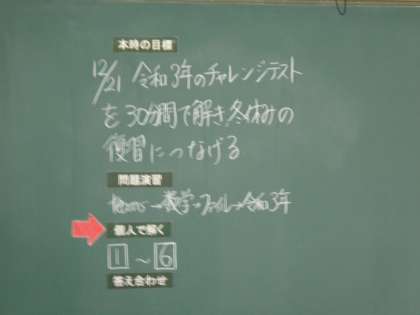 本時の目標
12/21 令和3年のチャレンジテスト
を30分間で解き冬休みの
復習につなげる
問題演習
→数学→ファイル→令和3年
個人で解く
1～6
答え合わせ